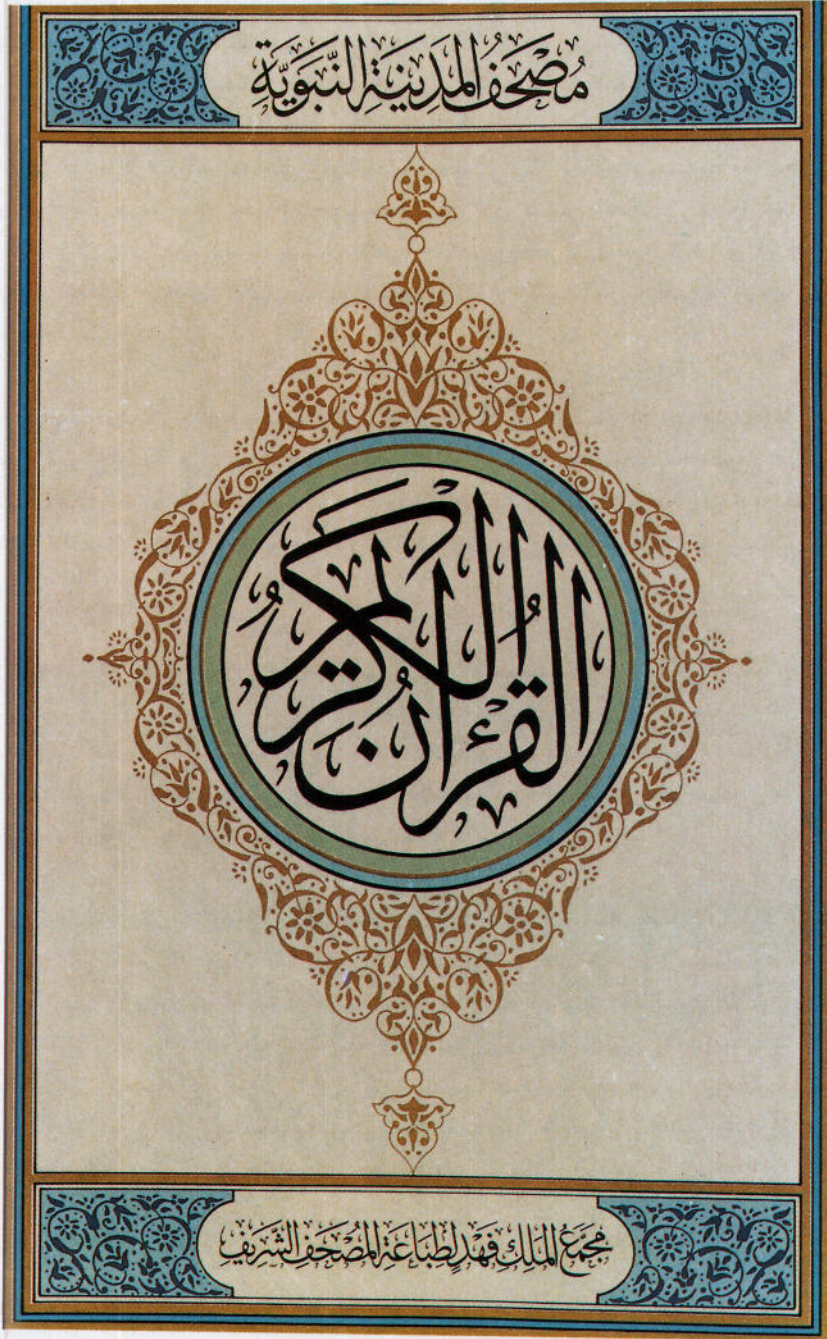 مُصْحَفُ المَدِينَةِ النَّبَوِيَّةِ
القُرْءَانُ الكَرِيمُ
مُجَمَّعُ المَلِكِ فَهْدٍ لِطِبَاعَةِ المُصْحَفِ الشَّرِيفِ